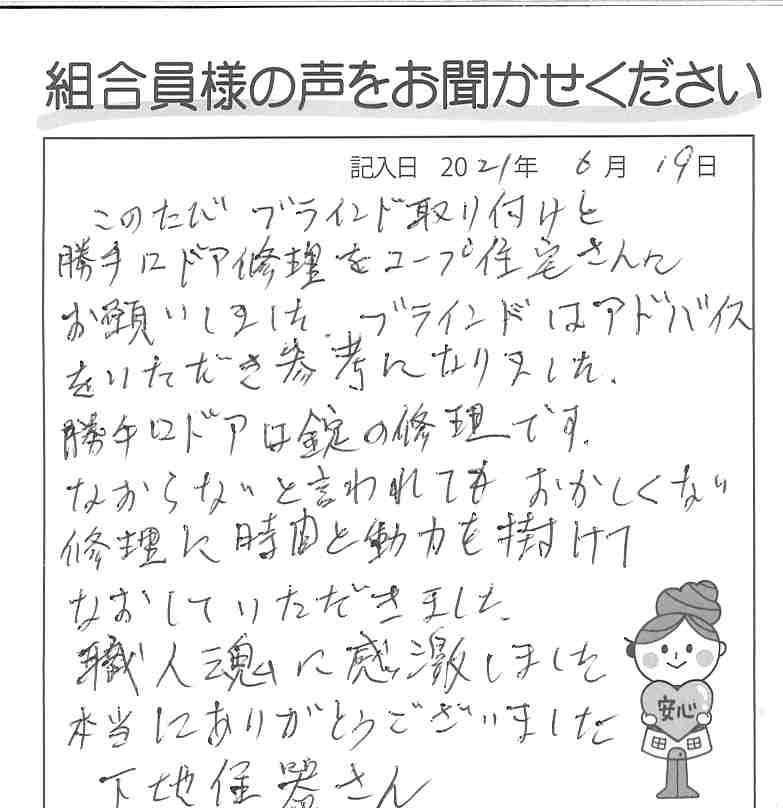 組合員様の声をお聞かせください
記入日 2021年 6月 19日
このたび ブラインド取り付けと
勝手口ドア修理をコープ住宅さんに
お願いしました。ブラインドはアドバイス
をいただき参考になりました。
勝手口ドアは錠の修理です。
なおらないと言われても おかしくない
修理に時間と動力を掛けて
なおしていただきました
職人魂に感激しました
本当にありがとうございました
下地住器さん
安心